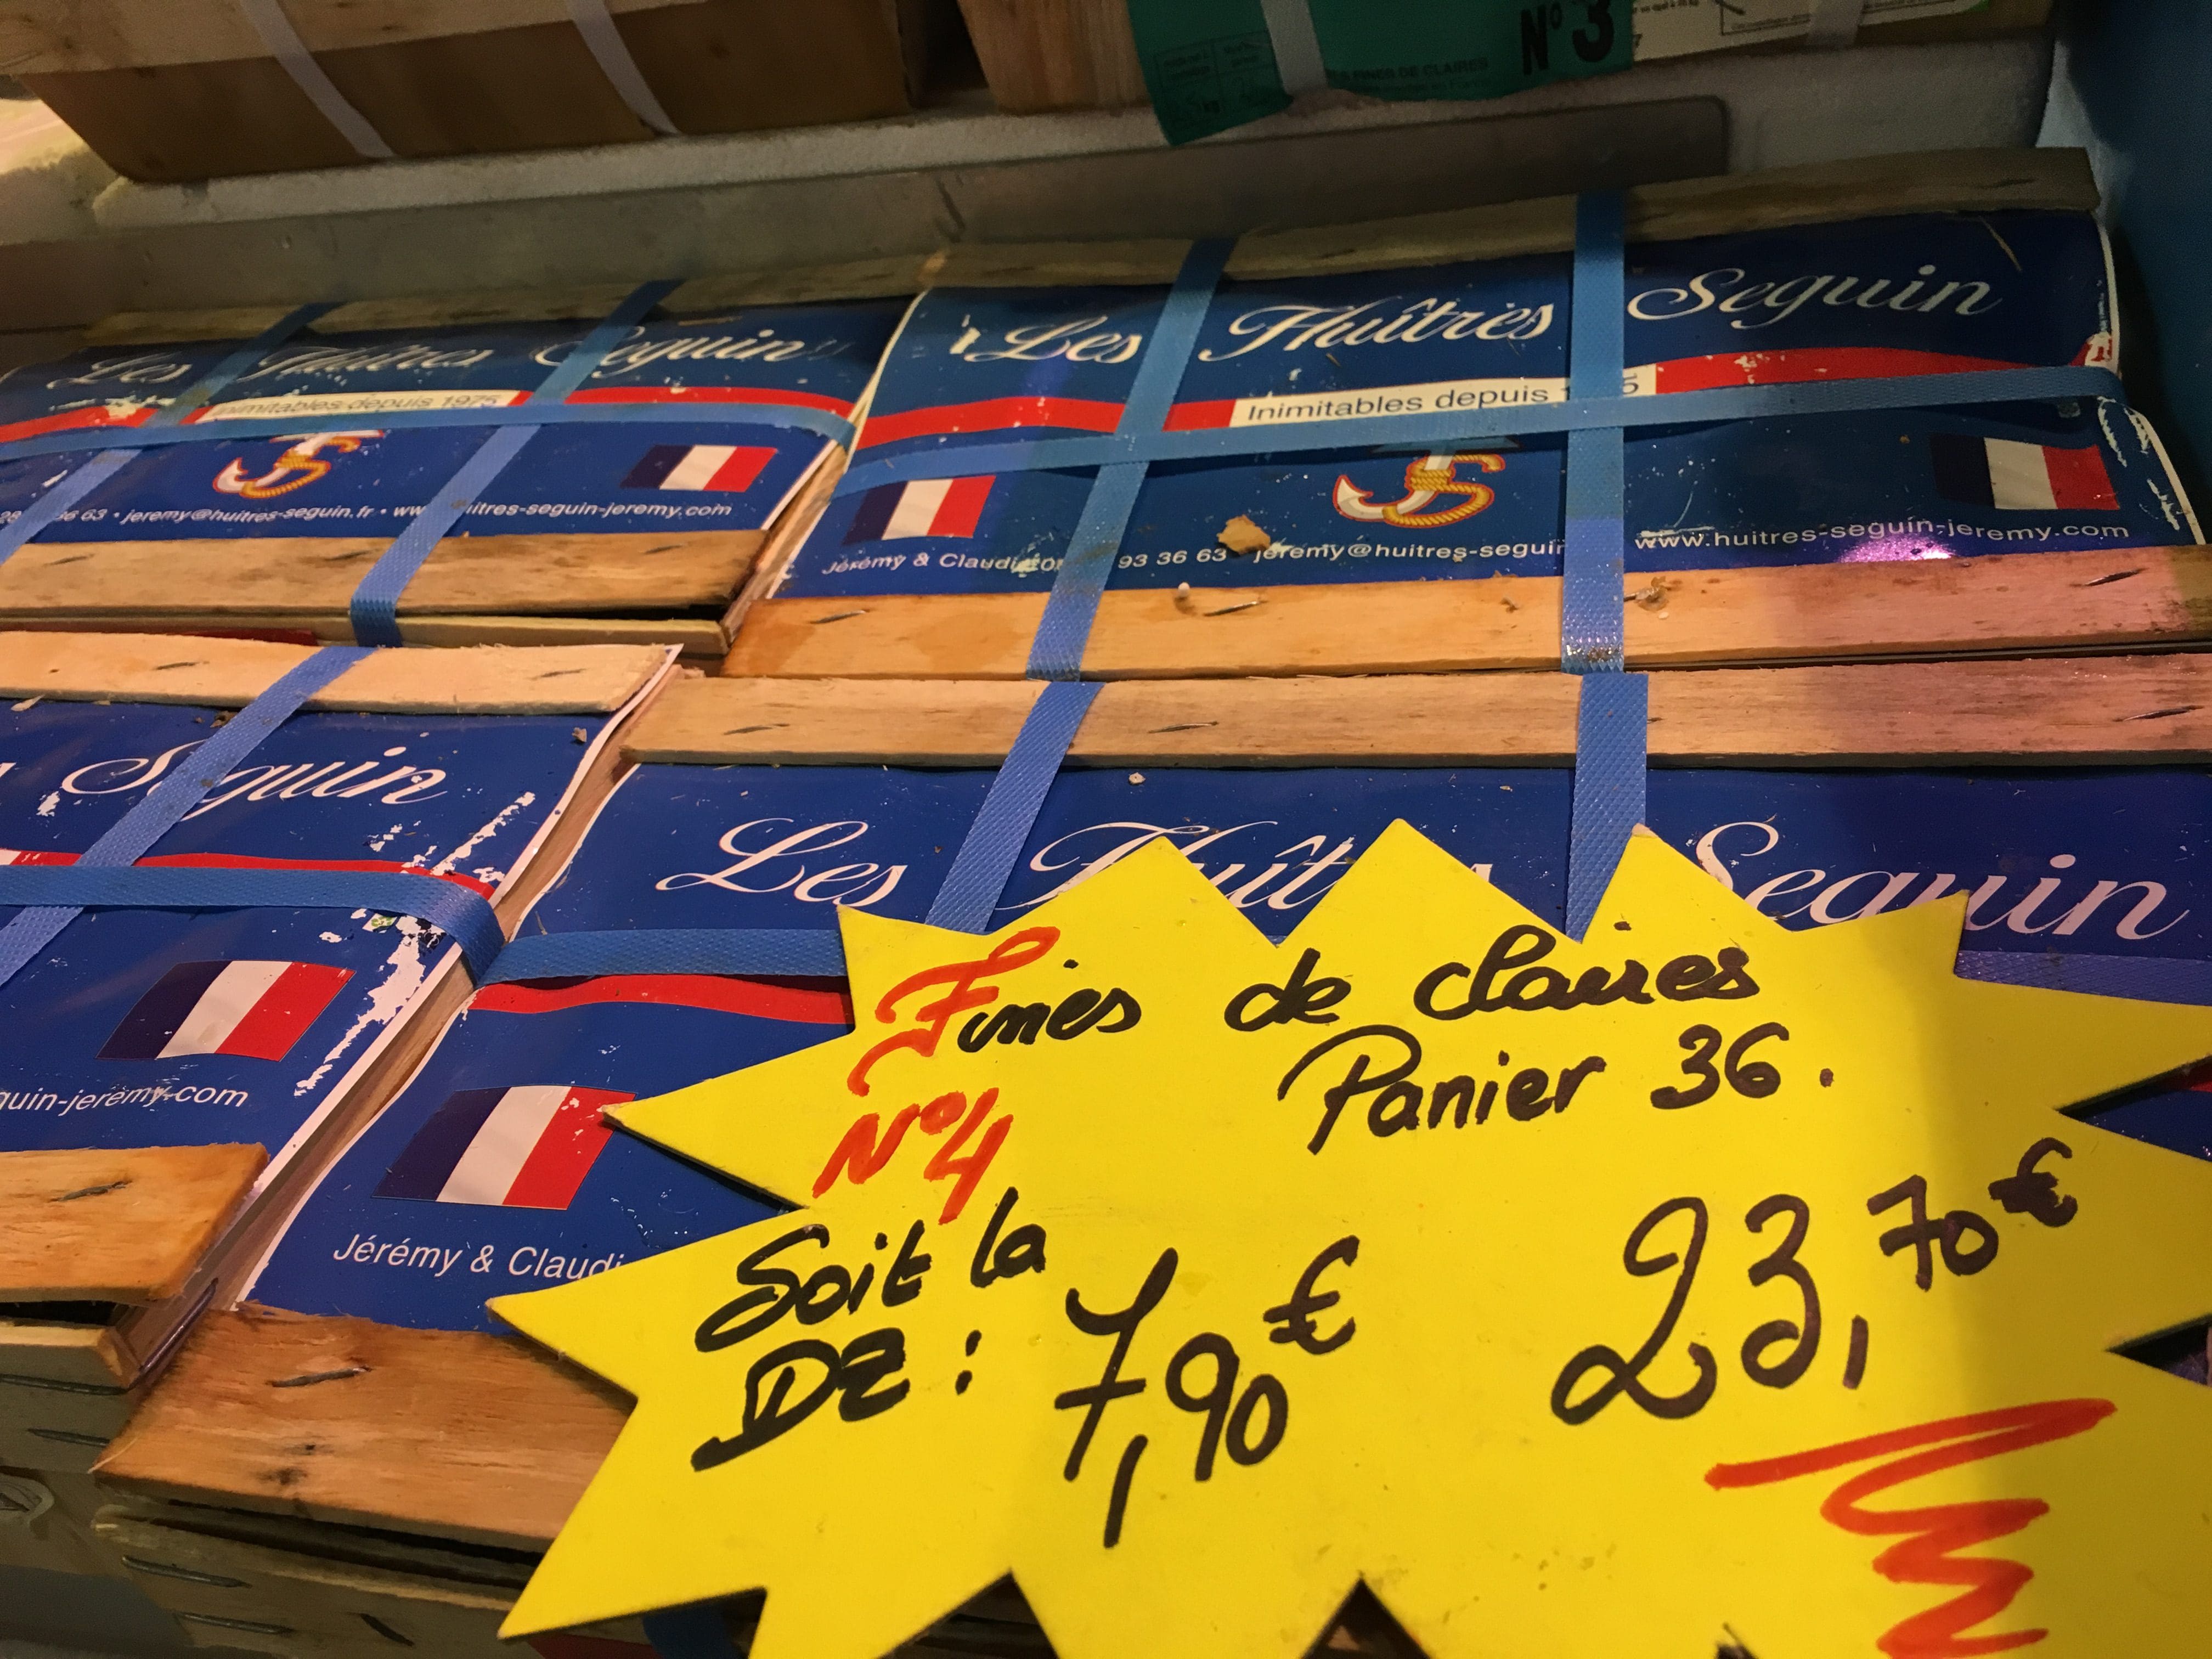 N° 3
FINES DE CLAIRES
Les Huîtres Seguin
Inimitables depuis 1975
36 63 • jeremy@huitres-seguin.fr • www. itres-seguin-jeremy.com
Les Huîtres Seguin
Inimitables depuis 1 5
Jérémy & Claudi 93 36 63 jeremy@huitres-seguin www.huitres-seguin-jeremy.com
Seguin
guin-jeremy.com
Les Huîtres Seguin
Jérémy & Claudi
Fines de claires
N°4 Panier 36.
Soit la
DZ : 7,90€
23,70€